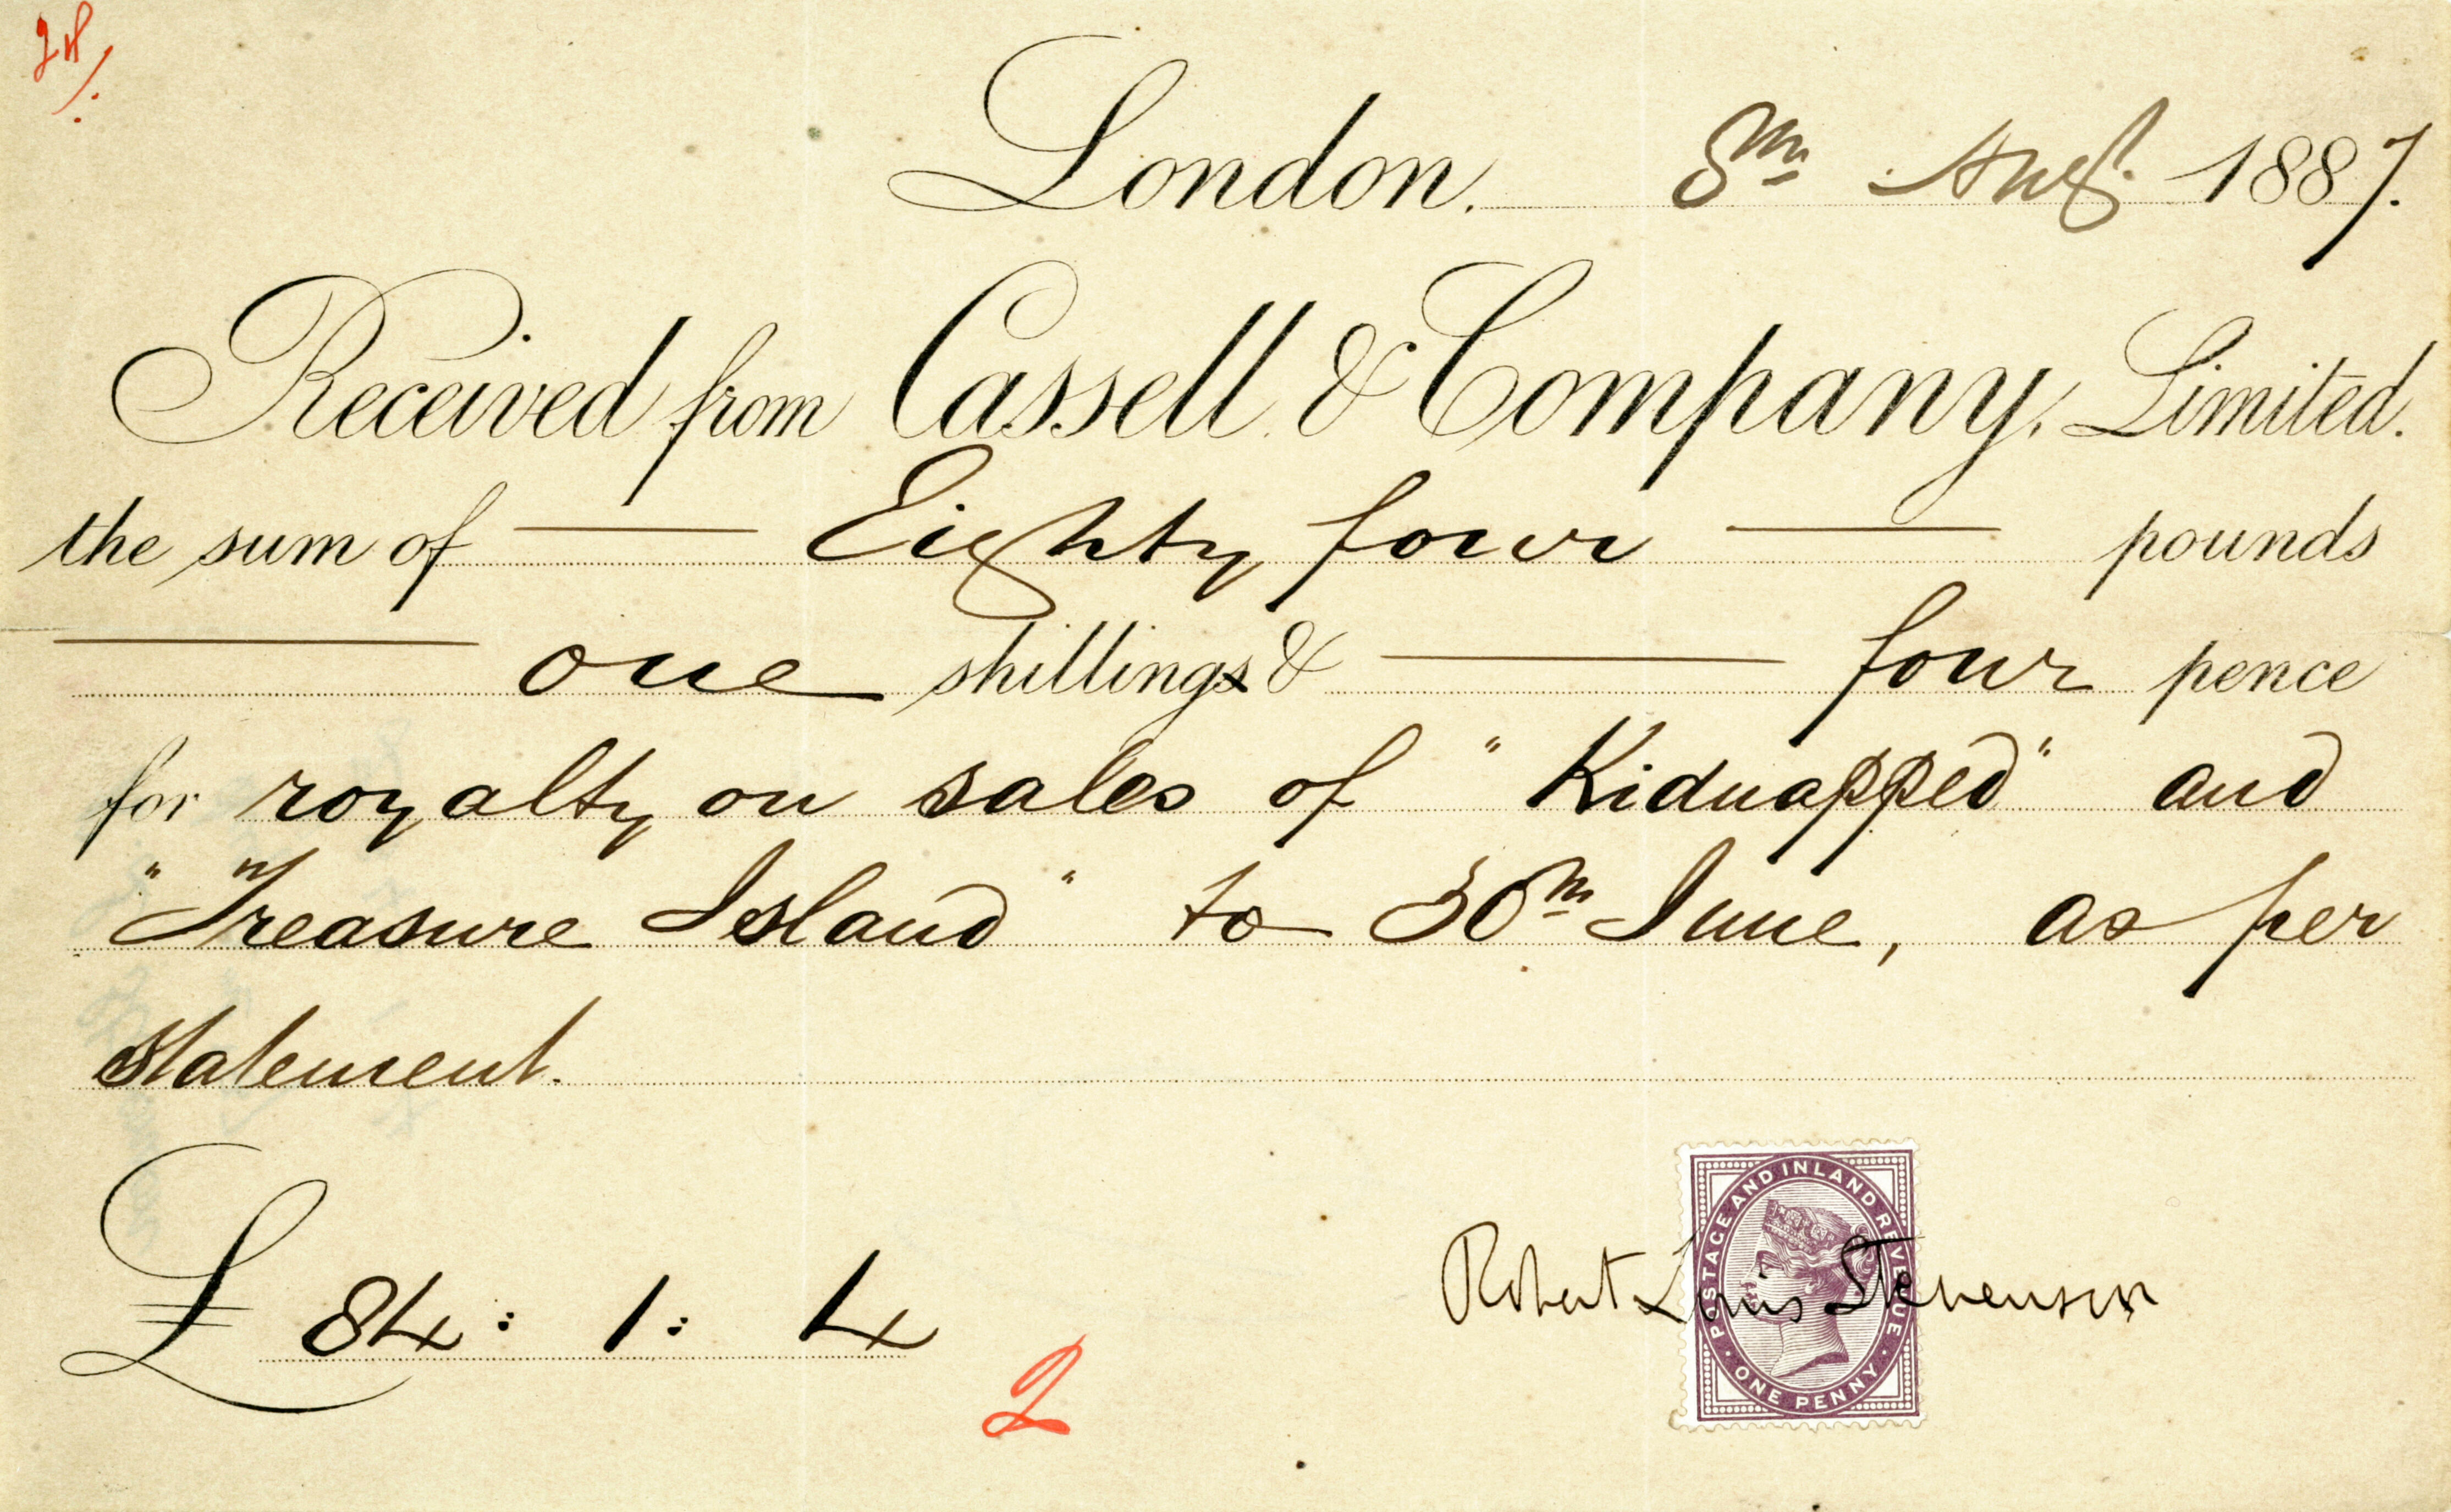 London. 8th Aug. 1887.
Received from Cassell & Company, Limited.
the sum of Eighty four pounds
one shillings & four pence
for royalty on sales of "Kidnapped" and
"Treasure Island" to 30th June, as per
statement.
£ 84 : 1 : 4
2
Robert Louis Stevenson
POSTAGE AND INLAND REVENUE
ONE PENNY